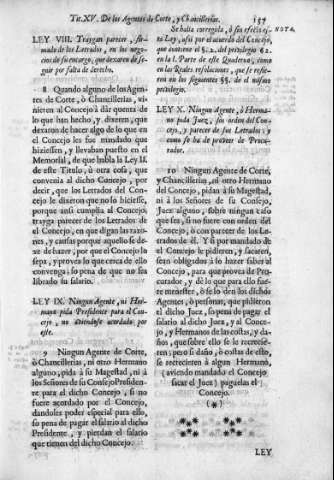 Tit. XV. De los Agentes de Corte, y Chancillerias. 157
LEY VIII. Traygan parecer, fir-
mado de los Letrados, en los nego-
cios de su encargo, que dexaren de se-
guir por falta de derecho.
8 Quando alguno de los Agen-
tes de Corte, ò Chancillerias, vi-
nieren al Concejo à dàr quenta de
lo que han hecho, y dixeren, que
dexaron de hacer algo de lo que en
el Concejo les fue mandado que
hiciessen, y llevaban puesto en el
Memorial, de que habla la Ley II.
de este Titulo, ù otra cosa, que
convenia al dicho Concejo, por
decir, que los Letrados del Con-
cejo le dixeron que no lo hiciesse,
porque ansi cumplia al Concejo
trayga parecer de los Letrados de
el Concejo, en que digan las razo-
nes, y causas porque aquello se de-
xe de hacer, por que el Concejo lo
sepa, y provea lo que cerca de ello
convenga: so pena de que no sea
librado su salario.
LEY IX. Ningun Agente, ni Her-
mano pida Presidente para el Con-
cejo, no siendole acordado por
este.
9 Ningun Agente de Corte,
ò Chancillerias, ni otro Hermano
alguno, pida à su Magestad, ni à
los Señores de su Consejo Presiden-
te para el dicho Concejo, si no
fuere acordado por el Concejo,
dandoles poder especial para ello,
so pena de pagar el salario al dicho
Presidente, y pierdan el salario
que tienen del dicho Concejo.
Se halla corregida, ò sin efecto es-
ta Ley, assi por el acuerdo del Concejo,
que contiene el §. 2. del privilegio 62.
en la 1. Parte de este Quaderno, como
en las Reales resoluciones, que se refie-
ren en los siguientes §§. de el mismo
privilegio.
NOTA.
LEY X. Ningun Agente, ò Herma-
no pida Juez, sin orden del Con-
cejo, y parecer de sus Letrados: y
como se ha de proveer de Procu-
rador.
10 Ningun Agente de Corte,
y Chancillerias, ni otro Hermano
del Concejo, pidan à su Magestad,
ni à los Señores de su Consejo,
Juez alguno, sobre ningun caso
que sea, si no fuere con orden del
Concejo, ò con parecer de los Le-
trados de èl. Y si por mandado de
el Concejo le pidieren, y sacaren,
sean obligados à lo hacer saber al
Concejo, para que provea de Pro-
curador, y dè lo que para ello fue-
re menester, ò se lo den los dichos
Agentes, ò personas, que pidieren
el dicho Juez, so pena de pagar el
salario al dicho Juez, y al Conce-
jo, y Hermanos de las costas, y da-
ños, que sobre ello se le recrecie-
ren; pero si daño, ò costas de esto,
se recrecieren à algun Hermano
(aviendo mandado el Concejo
sacar el Juez) paguelas el
Concejo.
(*)
LEY